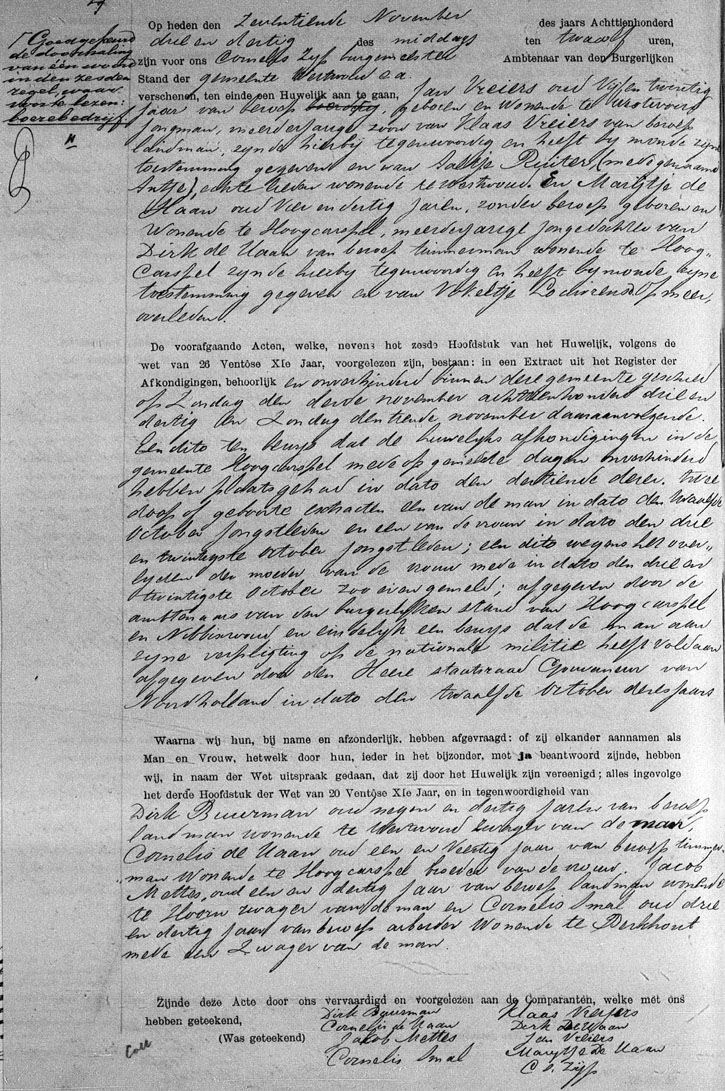 Goedgekeurd
de doorhaling
van één woord
in den zesden
regel, waar
voor te lezen:
boerebedrijf
Op heden den Zeventiende November des jaars Achttienhonderd
drie en dertig des middags ten twaalf uren,
zijn voor ons Cornelis Zijp burgemeester Ambtenaar van den Burgerlijken
Stand der gemeente Westwoud c.a.
verschenen, ten einde een Huwelijk aan te gaan, Jan Vreiers oud Vijfentwintig
Jaar van beroep geboren en Wonende te Westwoud
Jongman, meerderjarige zoon van Klaas Vreiers van beroep
landman, zynde hierby tegenwoordig en heeft by monde zyne
toestemming gegeven en van Aaltje Ruiter (mede genaamd
Antje), echte lieden wonende te Westwoud. En Marijtje de
Haan oud Vier en dertig Jaren, zonder beroep geboren en
Wonende te Hoogcarspel, meerderjarige Jongedochter van
Dirk de Haan van beroep timmerman wonende te Hoog-
Carspel zynde hierby tegenwoordig en heeft by monde zyne
toestemming gegeven en van Vokeltje
overleden
De voorafgaande Acten, welke, nevens het zesde Hoofdstuk van het Huwelijk, volgens de
wet van 26 Ventôse XIe Jaar, voorgelezen zijn, bestaan: in een Extract uit het Register der
Afkondigingen, behoorlijk en onverhinderd binnen deze gemeente geschied
op Zondag den derde november achttienhonderd drie en
dertig en Zondag den tiende november daaraanvolgende.
Een dito ten bewys dat de huwelyks afkondigingen in de
gemeente Hoogcarspel mede op gemelde dagen onverhinderd
hebben plaats gehad in dato den dertiende dezer. twee
doop of geboorte extracten een van de man in dato den twaalfde
October jongstleden en een van de vrouw in dato den drie
en twintigste October jongstleden; een dito wegens het over-
lyden der moeder van de vrouw mede in dato den drie en
twintigste October zoo even gemeld; afgegeven door de
ambtenaars van den burgerlyken stand van Hoogcarspel
en Nibbixwoud en eindelyk een bewys dat de man aan
zyne verpligting op de nationale militie heeft voldaan
afgegeven door den Heere staatsraad Gouverneur van
Noordholland in dato den twaalfde October dezes jaars
Waarna wij hun, bij name en afzonderlijk, hebben afgevraagd: of zij elkander aannamen als
Man en Vrouw, hetwelk door hun, ieder in het bijzonder, met ja beantwoord zijnde, hebben
wij, in naam der Wet uitspraak gedaan, dat zij door het Huwelijk zijn vereenigd; alles ingevolge
het derde Hoofdstuk der Wet van 20 Ventôse XIe Jaar, en in tegenwoordigheid van
Dirk Buurman oud negen en dertig jaren van beroep
landman wonende te Westwoud Zwager van de man,
Cornelis de Haan oud een en Veertig jaar van beroep timmer-
man Wonende te Hoogcarspel broeder van de vrouw. Jacob
Mettes, oud een en dertig Jaar van beroep landman wonende
te Hoorn zwager van de man en Cornelis Smal oud drie
en dertig jaar van beroep arbeider Wonende te Berkhout
mede een Zwager van de man.
Zijnde deze Acte door ons vervaardigd en voorgelezen aan de Comparanten, welke met ons
hebben geteekend,
(Was geteekend)
Dirk Buurman
Cornelis de Haan
Jakob Mettes
Cornelis Smal
Klaas Vreijers
Dirk De Haan
Jan Vreiers
Marijtje De Haan
C. Zijp
Coll